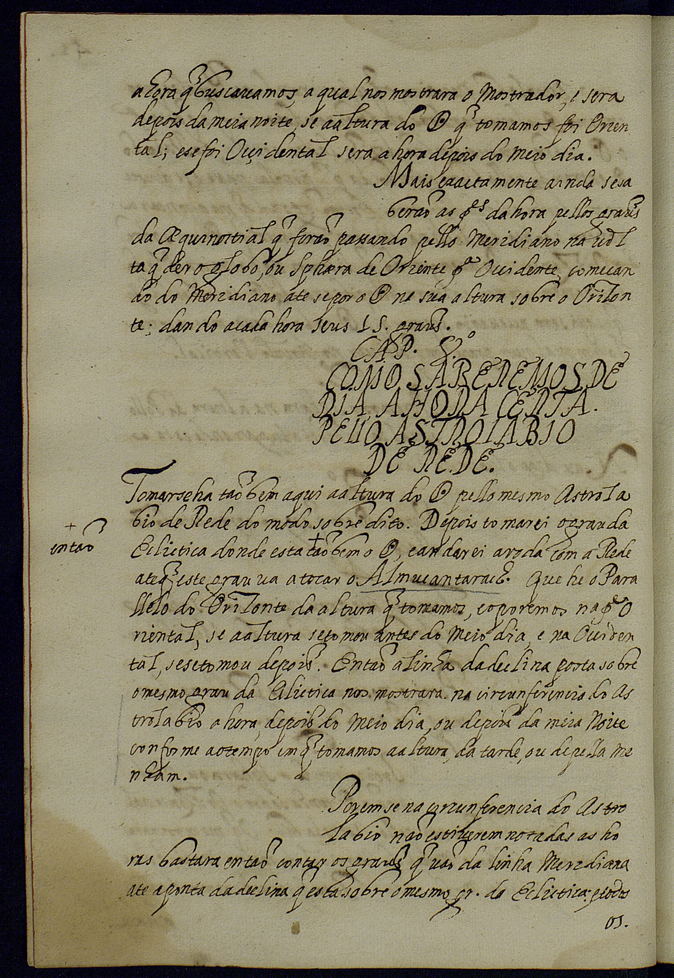 a hora q̃ buscauamos, a qual nos mostrara o Mostrador, e sera
depois da meia noite, se a altura do ☉ q̃ tomamos foi Orien
tal; e se foi Occidental sera a hora depois do meio dia.
Mais exactamente ainda se sa
berão as p.es da hora pellos graus
da Æquinoctial q̃ forão passando pello Meridiano na vol
ta q̃ der o globo, ou Sphæra de Oriente p.a Occidente, comecan
do do Meridiano ate se por o ☉ na sua altura sobre o Orizon
te; dando a cada hora seus 15. graus.
CAP. 8.o
COMO SABEREMOS DE
DIA, A HORA CERTA.
PELLO ASTROLABIO
DE REDE.
Tomarseha tão bem aqui a altura do ☉ pello mesmo Astrola
bio de Rede do modo sobre dito. Depois tomarei o grau da
+
então
Eclictica donde esta + tão bem o ☉, e andarei a roda com a Rede
ate q̃ este grau va a tocar o Almucantarach. Que he o Para
llelo do Orizonte da altura q̃ tomamos, e o poremos na p.e O
riental, se a altura se tomou antes do Meio dia, e na Ociden
tal, se se tomou depois. Então a linha da declina posta sobre
o mesmo grau da Eclictica nos mostrara na circunferencia do As
trolabio a hora, depois do Meio dia, ou depois da meia Noite
conforme ao tempo em q̃ tomamos a altura, da tarde, ou de pella me
nham.
Porem se na circunferencia do Astro
labio não estiuerem notadas as ho
ras bastara então contar os graus q̃ vão da linha Meridiana
ate a ponta da declina q̃ esta sobre o mesmo gr. da Eclictica; e todos
os.